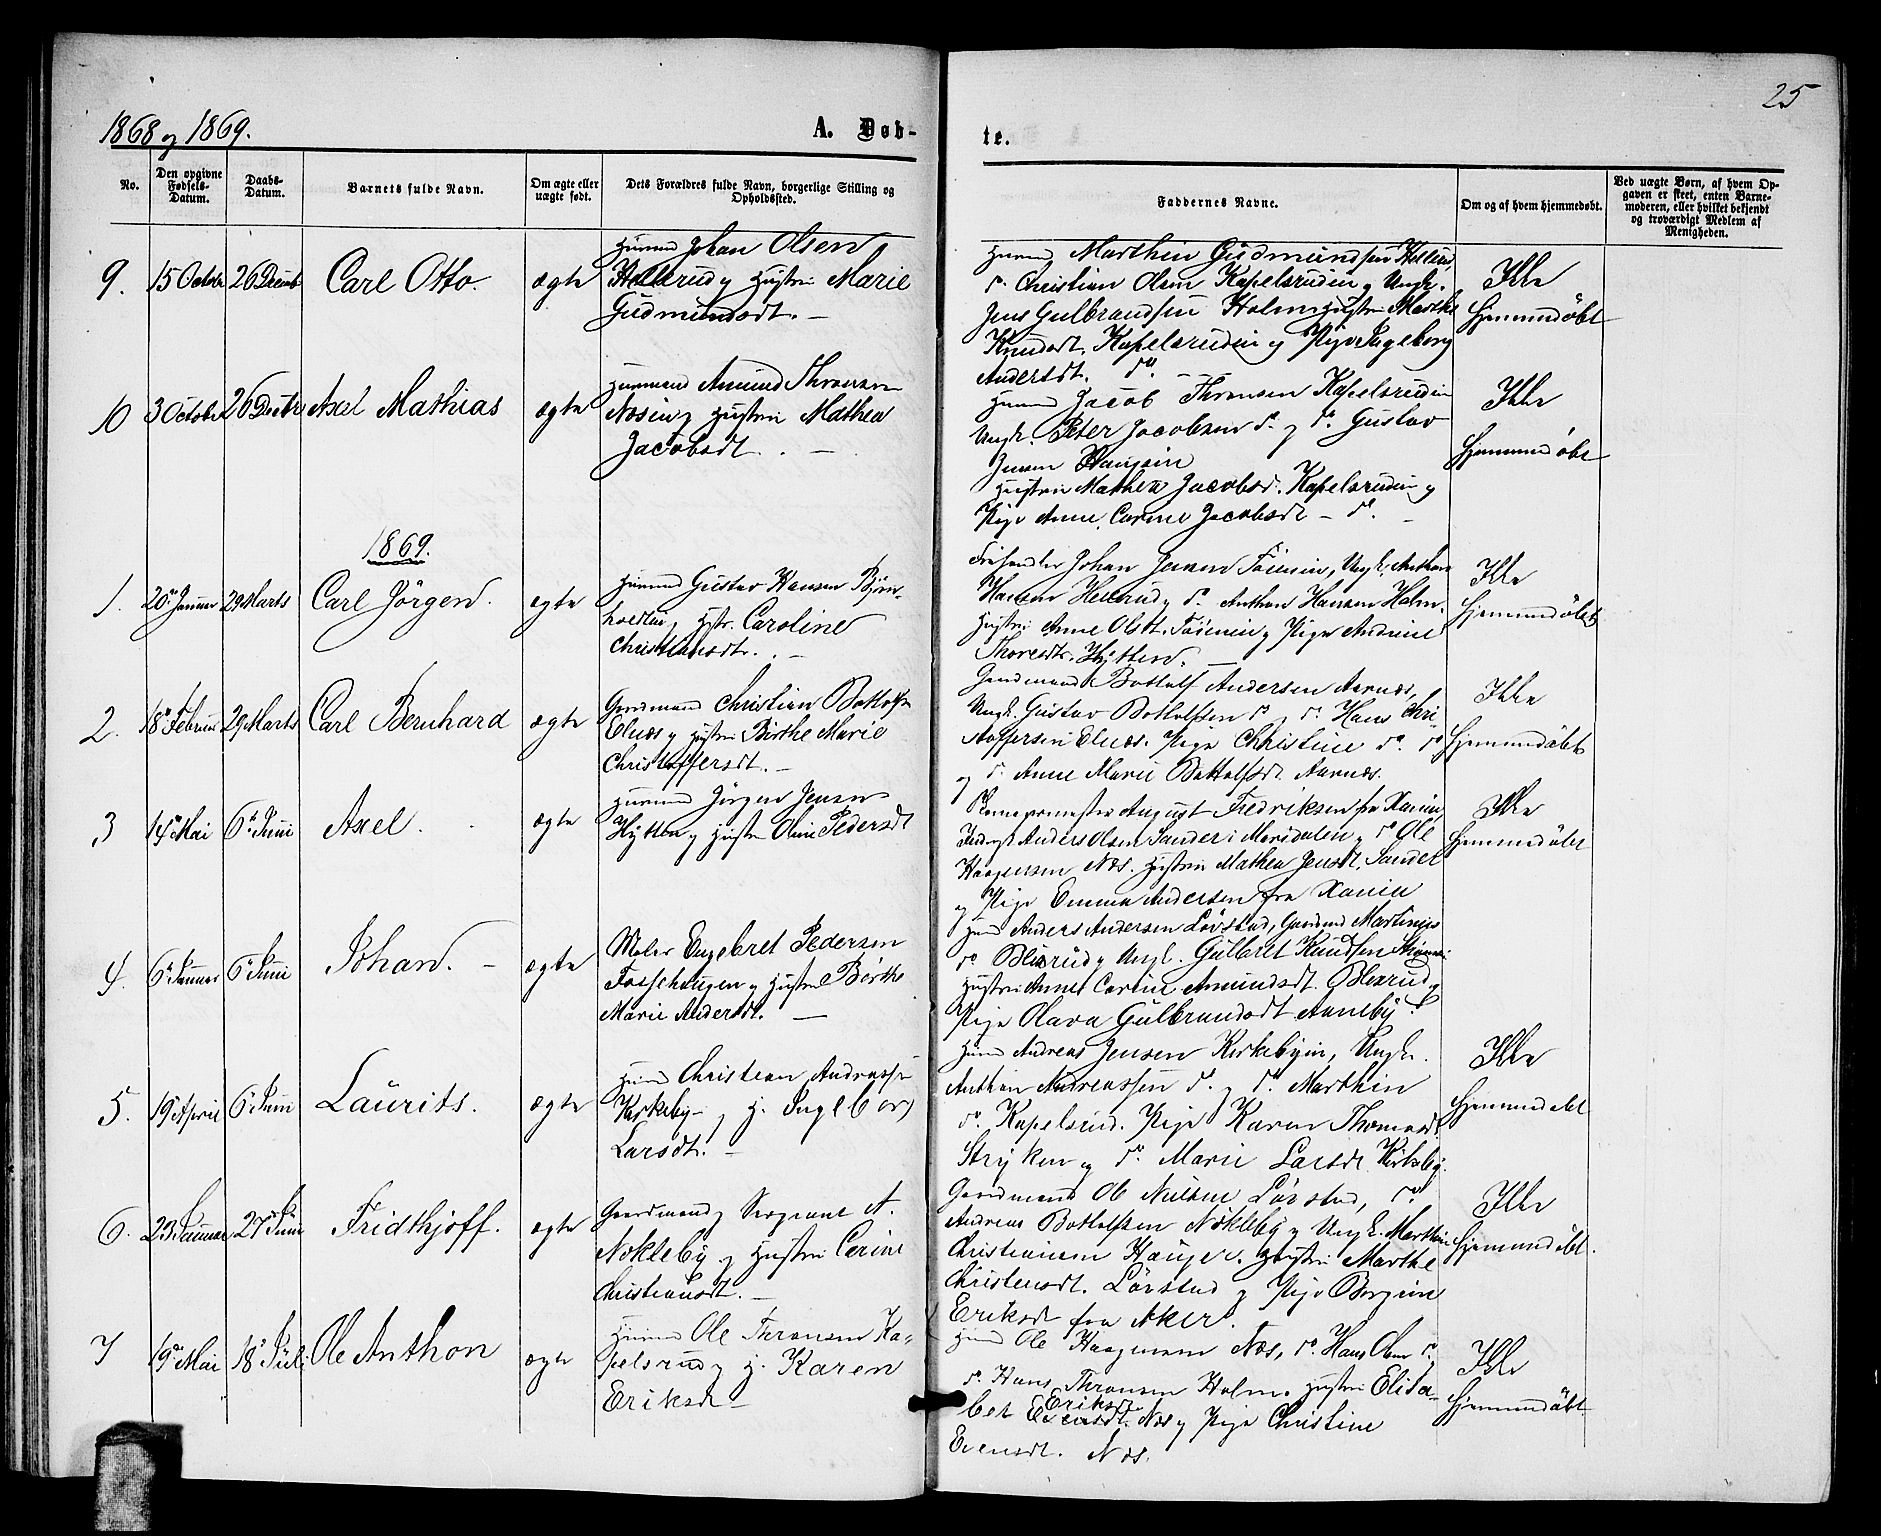 25
1868 og 1869.
A. Døb-
te.
No.
Den opgivne Fødsels-Datum.
Daabs-Datum.
Barnets fulde Navn.
Om ægte eller uægte født.
Dets Forældres fulde Navn, borgerlige Stilling og Opholdssted.
Faddernes Navne.
Om og af hvem hjemmedøbt.
Ved uægte Børn, af hvem Op-
gaven er skeet, enten Barne-
moderen, eller hvilket bekjendt
og troværdigt Medlem af
Menigheden.
9. 15 Octobr 26 Decemb Carl Otto. ægte
Huusmd Johan Olsen
Hellerud og Hustru Marie
Gudmundsdt. —
Huusmd Marthin Gudmundsen Hellerud,
do. Christian Olsen Kapelsrudeie og Ungk.
Jens Gulbrandsen Holm, Hustru Marthe
Knudsdt. Kapelsrudeie og Pige Ingeborg
Andersdt. do.
Ikke
Hjemmedøbt
10 3 October 26 Decbr Axel Mathias ægte
Huusmand Amund Thronsen
Næseie og Hustru Mathea
Jacobsdt. —
Huusmd Jacob Thronsen Kapelsrudeie
Ungk. Peter Jacobsen do. og do. Gustav
Jensen
Hustru Mathea Jacobsd. Kapelsrudeie og
Pige Anne Carine Jacobsdt — do. —
Ikke
Hjemmedøbt
1869.
1. 20de Januar 29 Marts Carl Jörgen. ægte
Huusmd Gustav Hansen Björn-
holtn og Hstr. Caroline
Christiansdt. —
Johan Jensen Ungk. Anthon
Hansen Hellerud og do. Anthon Hansen Holm.
Hustru Anne Olsdt. og Pige Andrine
Thoresdtr. Hytten. —
Ikke
Hjemmedøbt
2. 18de Februar 29 Marts Carl Bernhard ægte
Gaardmand Christian Bottolfsen
Elnæs og Hustru Birthe Marie
Christoffersdt. —
Gaardmand Bottolf Andersen Aarnæs,
Ungk. Gustav Bottolfsen do og do. Hans Chri-
stoffersen Elnæs. Pige Christine do. do
og do. Anne Marie Bottolfsdt. Aarnæs.
Ikke
Hjemmedøbt
3 14de Mai 6te Juni Axel. ægte
Huusmd Jörgen Jensen
Hytten og Hustru Oline Pedersdt
August Fredriksen fra Xania,
Anders Olsen Sander i Marsdalen og do Ole
Haagensen Næs. Hustru Mathea Jensdt. Sander
og Pige Emma Andersen fra Xania
Ikke
Hjemmedøbt
4. 6te Januar 6te Juni Johan. — ægte
Maler Engebret Pedersen
Fossehaugen og Hustru Børthe
Marie Andersdt. —
Huusmd Anders Andersen Lövstad, Gaardmd Martinus
do Blexrud og Ungk. Gulbret Knudsen
Hustru Anne Carine Amundsdt. Blexrud og
Pige Olava Gulbrandsdt Aaneby.
5. 19de April 6te Juni Laurits. ægte
Huusmd Christian Andreassen
Kirkeby — og H. Ingeborg
Larsdt. —
Huusmd Andreas Jensen Kirkebyeie, Ungkr.
Anthon Andreassen do. og do. Marthin
do. Kapelsrud. Pige Karen Thomasdt.
Stryken og do. Marie Larsdt. Kirkeby.
Ikke
Hjemmedøbt
6. 23 Januar 27de Juni Fridthjoff. ægte
Gaardmand og Sergeant A.
Nökleby og Hustru Cerine
Christiansdt. —
Gaardmand Ole Nielsen Lövstad, do.
Andreas Bottolfsen Nökleby og Ungk. Marthin
Christiansen Hauger. Hustru Marthe
Christensdt. Lövstad og Pige Bergine
Eriksdt fra Aker.
Ikke
Hjemmedøbt.
7 19de Mai 18de Juli Ole Anthon ægte
Huusmd Ole Thronsen Ka-
pelsrud og H. Karen
Eriksdt —
Huusmd Ole Haagensen Næs, do. Hans Olsen do.
do. Hans Thronsen Holm. Hustru Elisa-
bet Eriksdt. Næs og Pige Christine
Evensdt. Næs.
Ikke
Hjemmedøbt